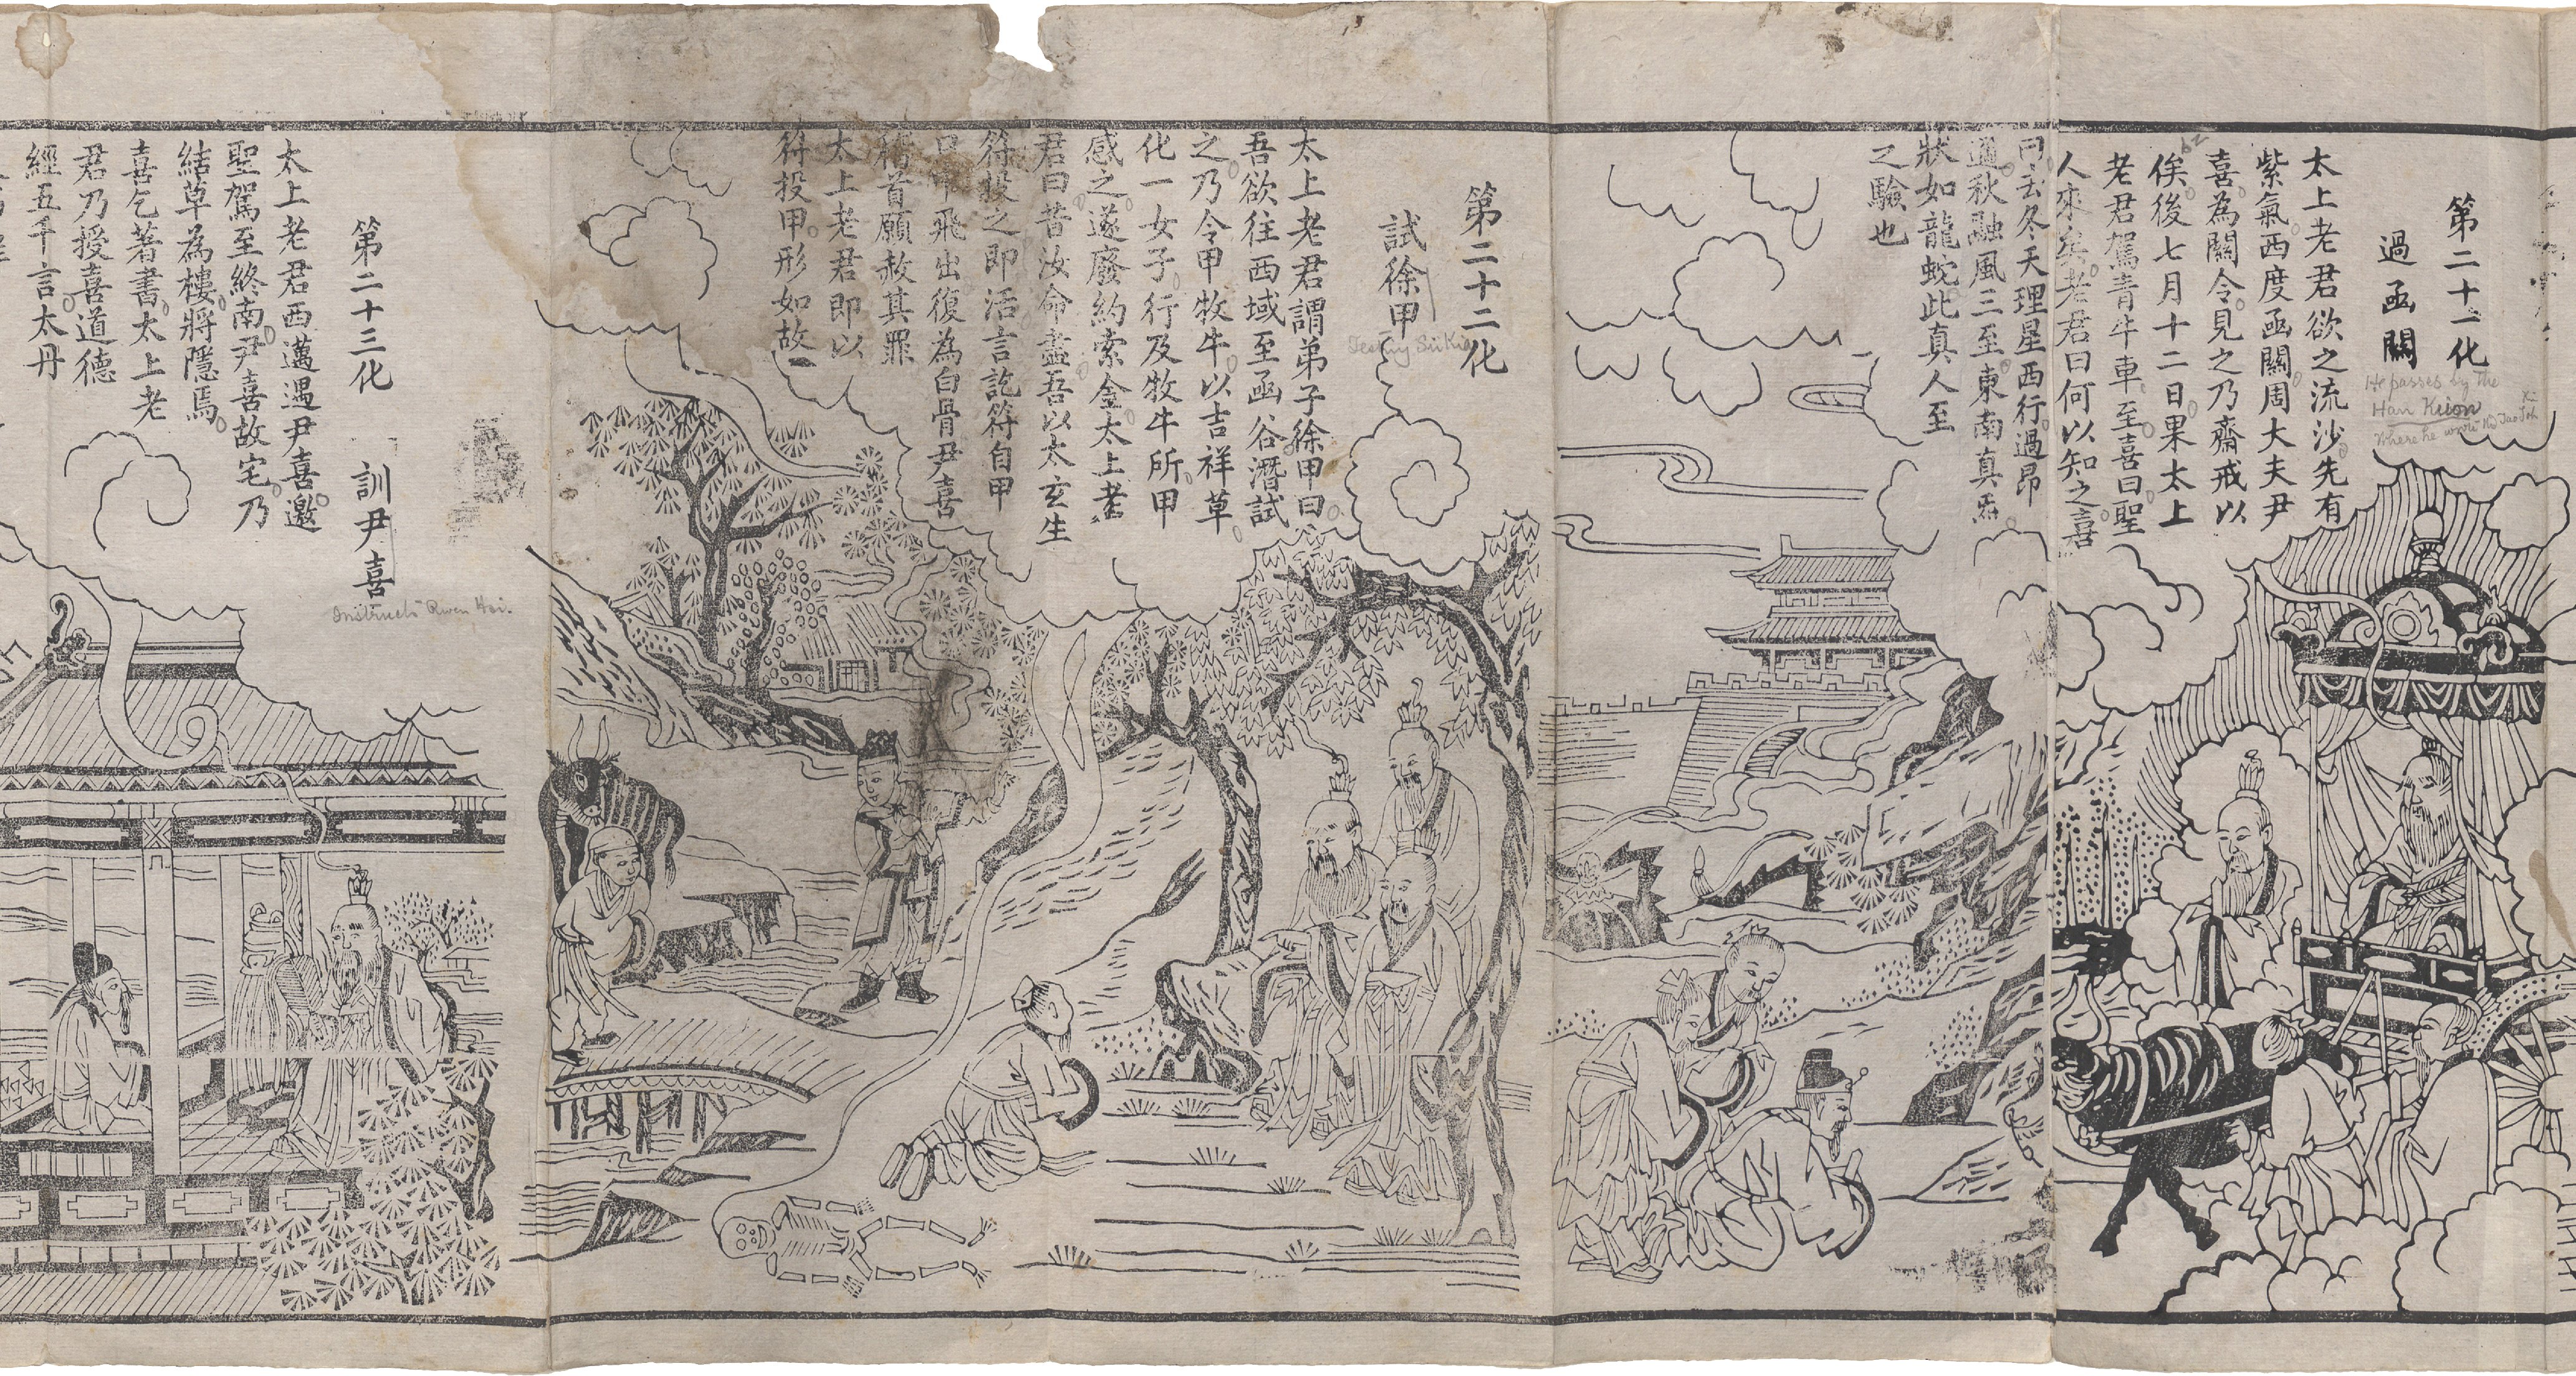 第二十一化
過函關
He passes by the
Han Kuon
where he wrote the Tao Teh
太上老君欲之流沙先有
紫氣西度函關周大夫尹
喜為關令見之乃齋戒以
俟後七月十二日果太上
老君駕青牛車至喜曰聖
人來矣老君曰何以知之喜
曰去冬天理星西行過昴
道秋融風三至東南真炁
狀如龍蛇此真人至
之驗也
第二十二化
試徐甲
Testing Sü Kia
太上老君謂弟子徐甲曰
吾欲往西域至函谷潛試
之乃令甲牧牛以吉祥草
化一女子行及牧牛所甲
感之遂廢約索金太上老
君曰昔汝命盡吾以太玄生
符投之即活言訖符自甲
口中飛出復為白骨尹喜
稽首願赦其罪
太上老君即以
符投甲形如故
第二十三化
訓尹喜
Instructs
太上老君西邁遇尹喜邀
聖駕至終南尹喜故宅乃
結草為樓將隱焉
喜乞著書太上老
君乃授喜道德
經五千言太丹